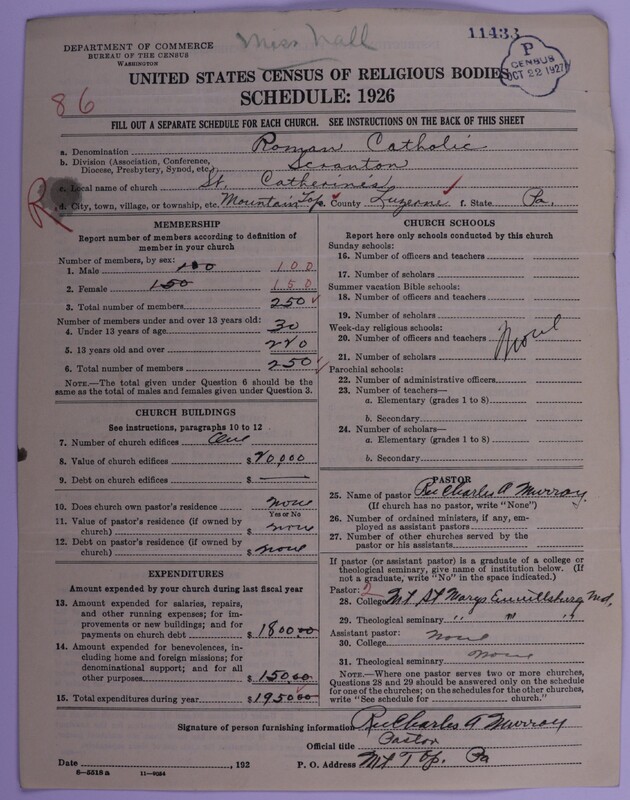 Miss Hall
11433
DEPARTMENT OF COMMERCE
BUREAU OF THE CENSUS
WASHINGTON
P
CENSUS
OCT 22 1927
UNITED STATES CENSUS OF RELIGIOUS BODIES
SCHEDULE: 1926
86
FILL OUT A SEPARATE SCHEDULE FOR EACH CHURCH. SEE INSTRUCTIONS ON THE BACK OF THIS SHEET
a. Denomination Roman Catholic
b. Division (Association, Conference, Diocese, Presbytery, Synod, etc.) Scranton
c. Local name of church St. Catherine's
d. City, town, village, or township, etc. Mountain Top e. County Luzerne f. State Pa.
R
MEMBERSHIP
Report number of members according to definition of
member in your church
Number of members, by sex:
1. Male 100 100
2. Female 150 150
3. Total number of members 250
Number of members under and over 13 years old:
4. Under 13 years of age 30
5. 13 years old and over 220
6. Total number of members 250
NOTE.—The total given under Question 6 should be
same as the total of males and females given under Question 3.
CHURCH BUILDINGS
See instructions, paragraphs 10 to 12
7. Number of church edifices One
8. Value of church edifices $ 20,000
9. Debt on church edifices $ —
10. Does church own pastor's residence none
Yes or No
11. Value of pastor's residence (if owned by
church) $ none
12. Debt on pastor's residence (if owned by
church) $ none
EXPENDITURES
Amount expended by your church during last fiscal year
13. Amount expended for salaries, repairs,
and other running expenses; for im-
provements or new buildings; and for
payments on church debt $ 1800.00
14. Amount expended for benevolences, in-
cluding home and foreign missions; for
denominational support; and for all
other purposes $ 150.00
15. Total expenditures during year $ 1950.00
CHURCH SCHOOLS
Report here only schools conducted by this church
Sunday schools:
16. Number of officers and teachers
17. Number of scholars
Summer vacation Bible schools:
18. Number of officers and teachers
19. Number of scholars
Week-day religious schools:
20. Number of officers and teachers
21. Number of scholars
None
Parochial schools:
22. Number of administrative officers
23. Number of teachers—
a. Elementary (grades 1 to 8)
b. Secondary
24. Number of scholars—
a. Elementary (grades 1 to 8)
b. Secondary
PASTOR
25. Name of pastor Rev Charles A Murray
(If church has no pastor, write "None")
26. Number of ordained ministers, if any, em-
ployed as assistant pastors
27. Number of other churches served by the
pastor or his assistants
If pastor (or assistant pastor) is a graduate of a college or
theological seminary, give name of institution below. (If
not a graduate, write "No" in the space indicated.)
Pastor: 2
28. College Mt St Marys Emmittsburg Md,
29. Theological seminary " " "
Assistant pastor:
30. College none
31. Theological seminary none
NOTE.—Where one pastor serves two or more churches,
Questions 28 and 29 should be answered only on the schedule
for one of the churches; on the schedules for the other churches,
write "See schedule for church."
Signature of person furnishing information Rev Charles A Murray
Official title Pastor
Date , 192 P. O. Address Mt Top. Pa
6—5518 a 11—9054